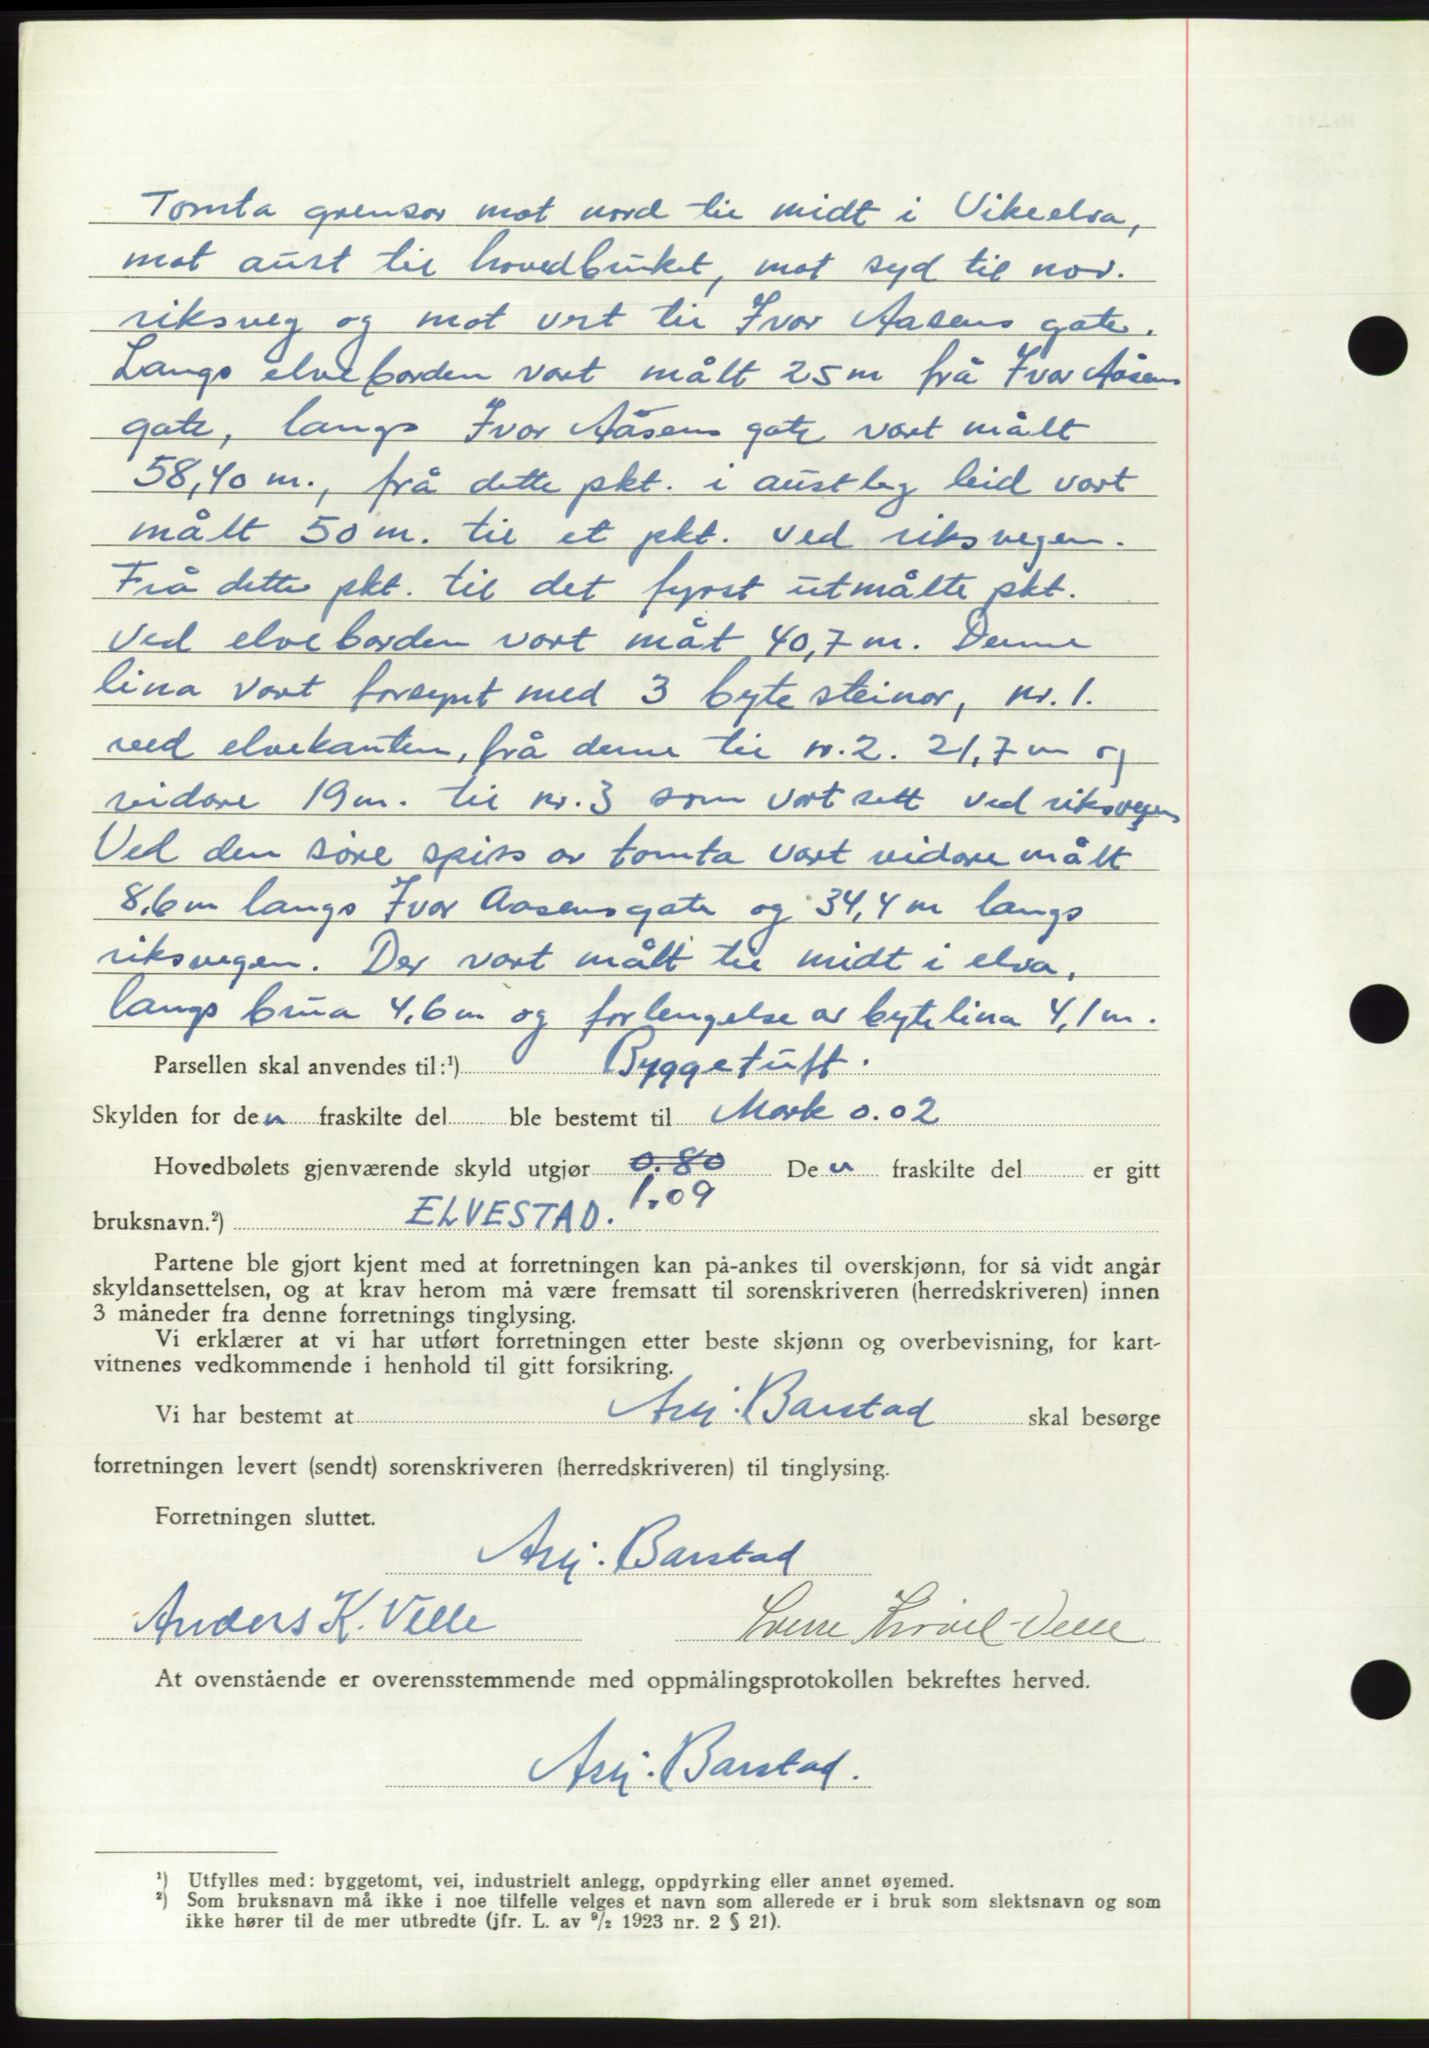 Tomta grensar mot nord til midt i Vikeelva,
mot aust til hovedbruket, mot syd til nov.
riksveg og mot vest til Ivar Aasens gate.
Langs elvebarden vart målt 25 m frå Ivar Aåsens
gate, langs Ivar Aåsens gate vart målt
58,40 m., frå dette pkt. i austleg leid vart
målt 50 m. til et pkt. ved riksvegen.
Frå dette pkt. til det fyrst utmålte pkt.
ved elvebarden vart måt 40,7 m. Denne
lina vart forsynt med 3 byte steinar, nr. 1.
ved elvekanten, frå denne til nr. 2. 21,7 m og
vidare 19 m. til nr. 3 som vart sett ved riksvegen
Ved den søre spiss av tomta vart vidare målt
8,6 m langs Ivar Aasens gate og 34,4 m langs
riksvegen. Der vart målt til midt i elva,
langs brua 4,6 m og forlengelse av bytelina 4,1 m.
Parsellen skal anvendes til:¹) Byggetuft.
Skylden for den fraskilte del ble bestemt til Mark 0.02
Hovedbølets gjenværende skyld utgjør 0.80 Den fraskilte del er gitt
1.09
bruksnavn.²) ELVESTAD.
Partene ble gjort kjent med at forretningen kan på-ankes til overskjønn, for så vidt angår
skyldansettelsen, og at krav herom må være fremsatt til sorenskriveren (herredskriveren) innen
3 måneder fra denne forretnings tinglysing.
Vi erklærer at vi har utført forretningen etter beste skjønn og overbevisning, for kart-
vitnenes vedkommende i henhold til gitt forsikring.
Vi har bestemt at Asbj. Barstad skal besørge
forretningen levert (sendt) sorenskriveren (herredskriveren) til tinglysing.
Forretningen sluttet.
Asbj. Barstad
Anders K. Velle Sverre Velle
At ovenstående er overensstemmende med oppmålingsprotokollen bekreftes herved.
Asbj. Barstad.
¹) Utfylles med: byggetomt, vei, industrielt anlegg, oppdyrking eller annet øyemed.
²) Som bruksnavn må ikke i noe tilfelle velges et navn som allerede er i bruk som slektsnavn og som
ikke hører til de mer utbredte (jfr. L. av ⁹/₂ 1923 nr. 2 § 21).